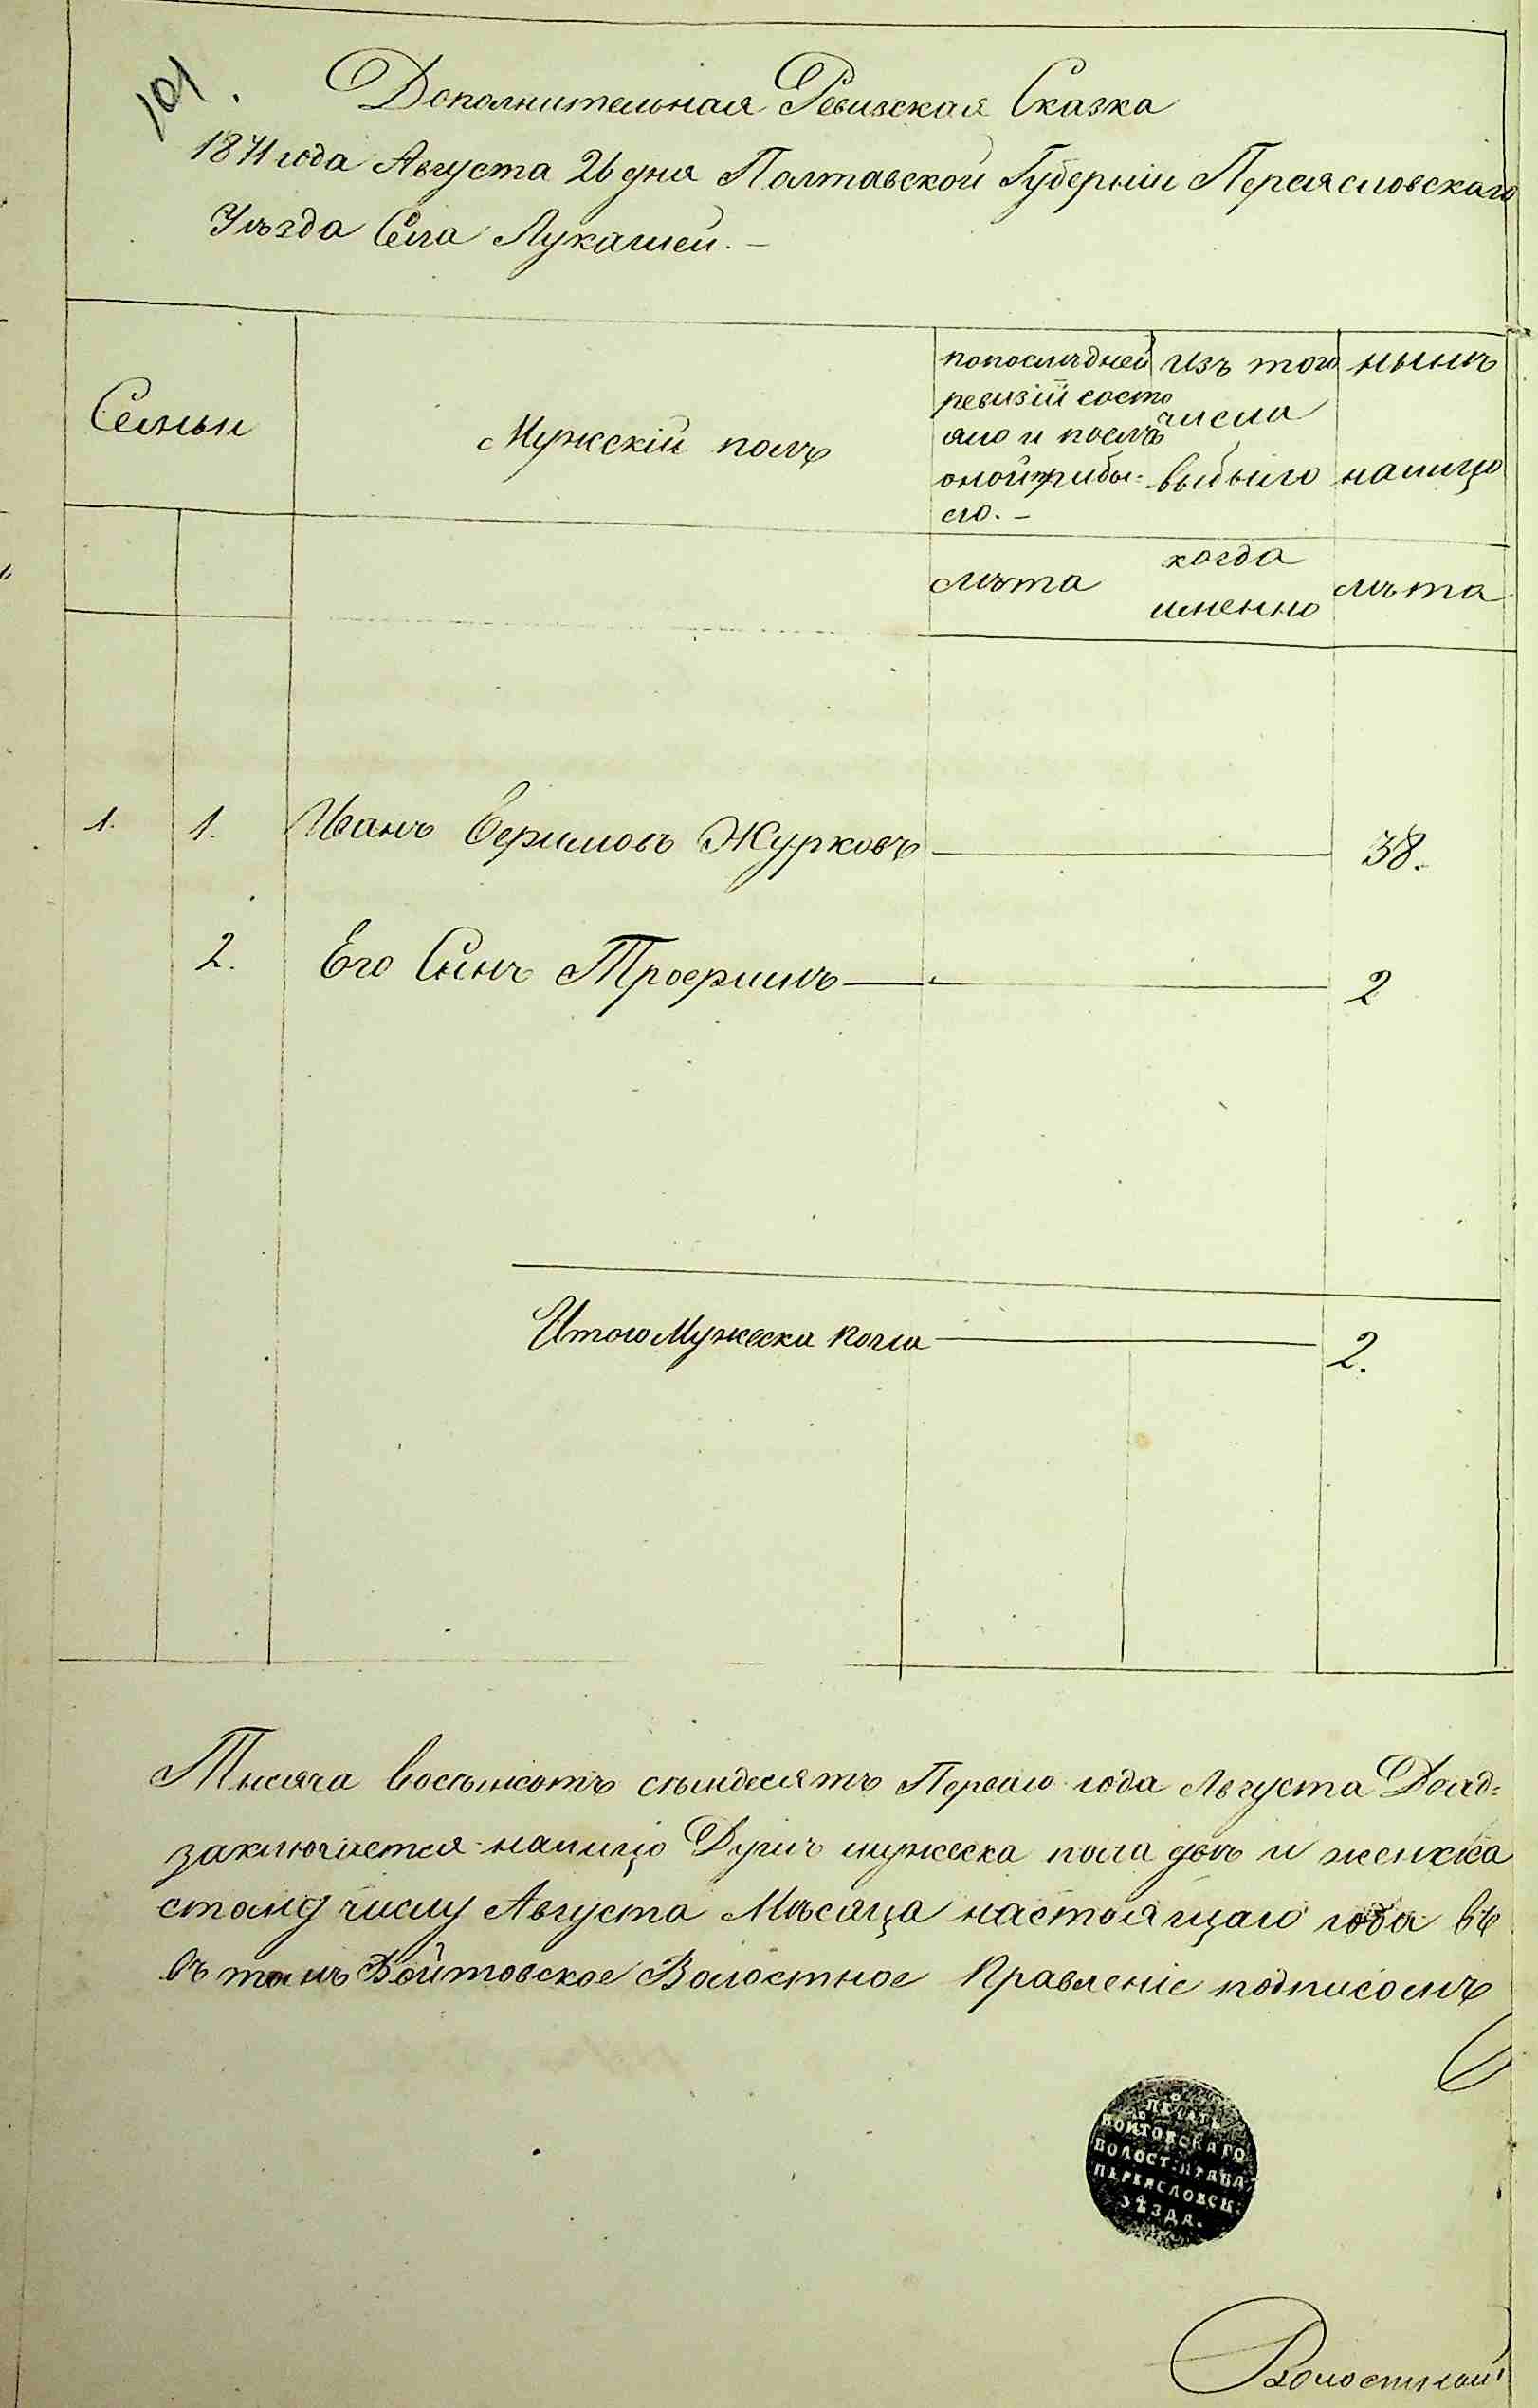 101.
Дополнительная Ревизская Сказка
1871 года Августа 26 дня Полтавской Губерніи Переясловскаго
Уѣзда Села Лукашей. –
Семьи
Мужскій полъ
попослѣдней
ревизіи состо
яло и послѣ
оной прибы-
ло. –
изъ того
числа
выбыло
нынѣ
налицо
лѣта
когда
именно
лѣта
1. 1. Иванъ Ефимовъ Журковъ 38.
2. Его Сынъ Трофимъ 2
Итого Мужеска пола 2.
Тысяча восемьсотъ семьдесятъ Перваго года Августа Двад-
заключается налицо Душъ мужеска пола двѣ и женска
стому числу Августа Мѣсяца настоящаго года въ
въ томъ Войтовское Волостное Правленіе подписомъ
ПЕЧАТЬ
ВОЙТОВСКАГО
ВОЛОСТ: ПРАВЛ.
ПЕРЕЯСЛОВСК:
УѢЗДА.
Волостной